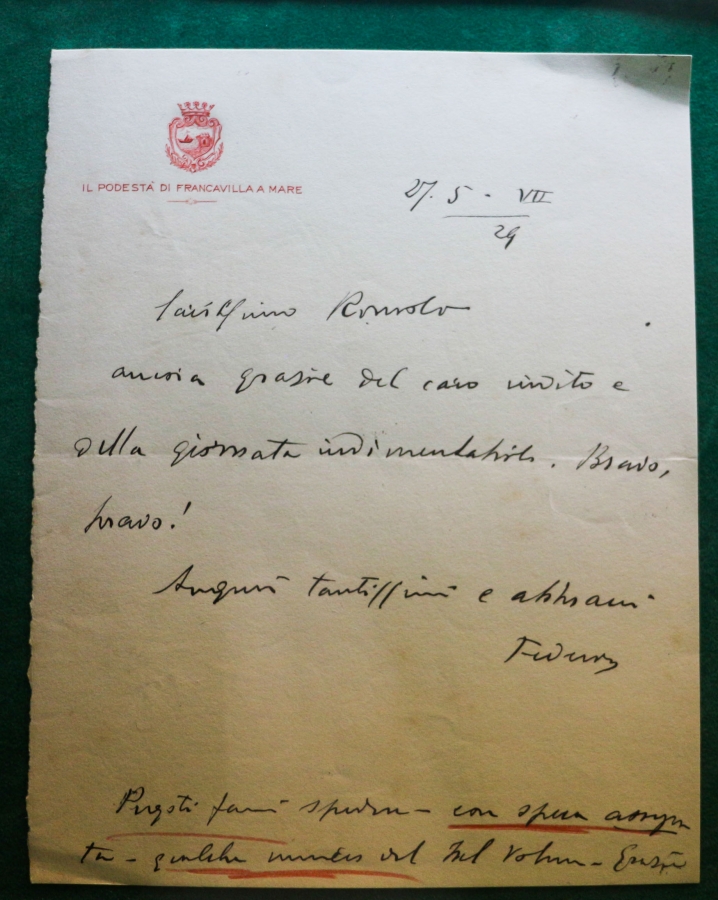 IL PODESTÀ DI FRANCAVILLA A MARE
27. 5 - VII
29
Carissimo Romolo
ancora grazie del caro invito e
della giornata indimenticabile. Bravo,
bravo!
Auguri tantissimi e abbracci
Federico
Pregoti farmi spedire - con spesa assegna
ta - qualche numero del bel volume - Grazie